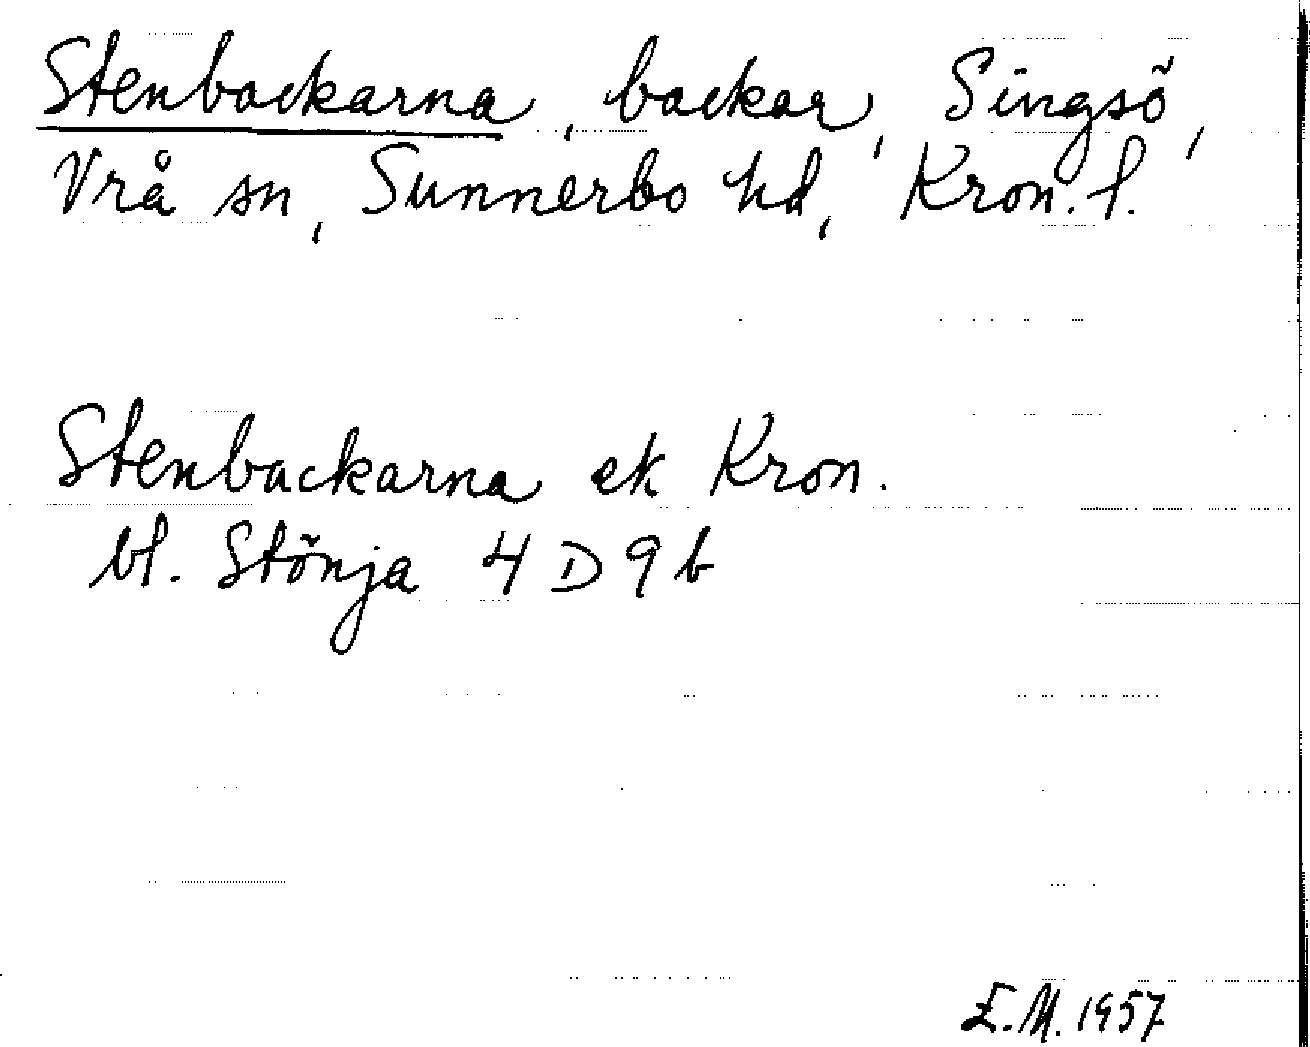 Stenbackarna, backar, Singsö,
Vrå sn, Sunnerbo hd, Kron. l.
Stenbackarna ek Kron.
bl. Stönja 4 D 9 b
E.M. 1957